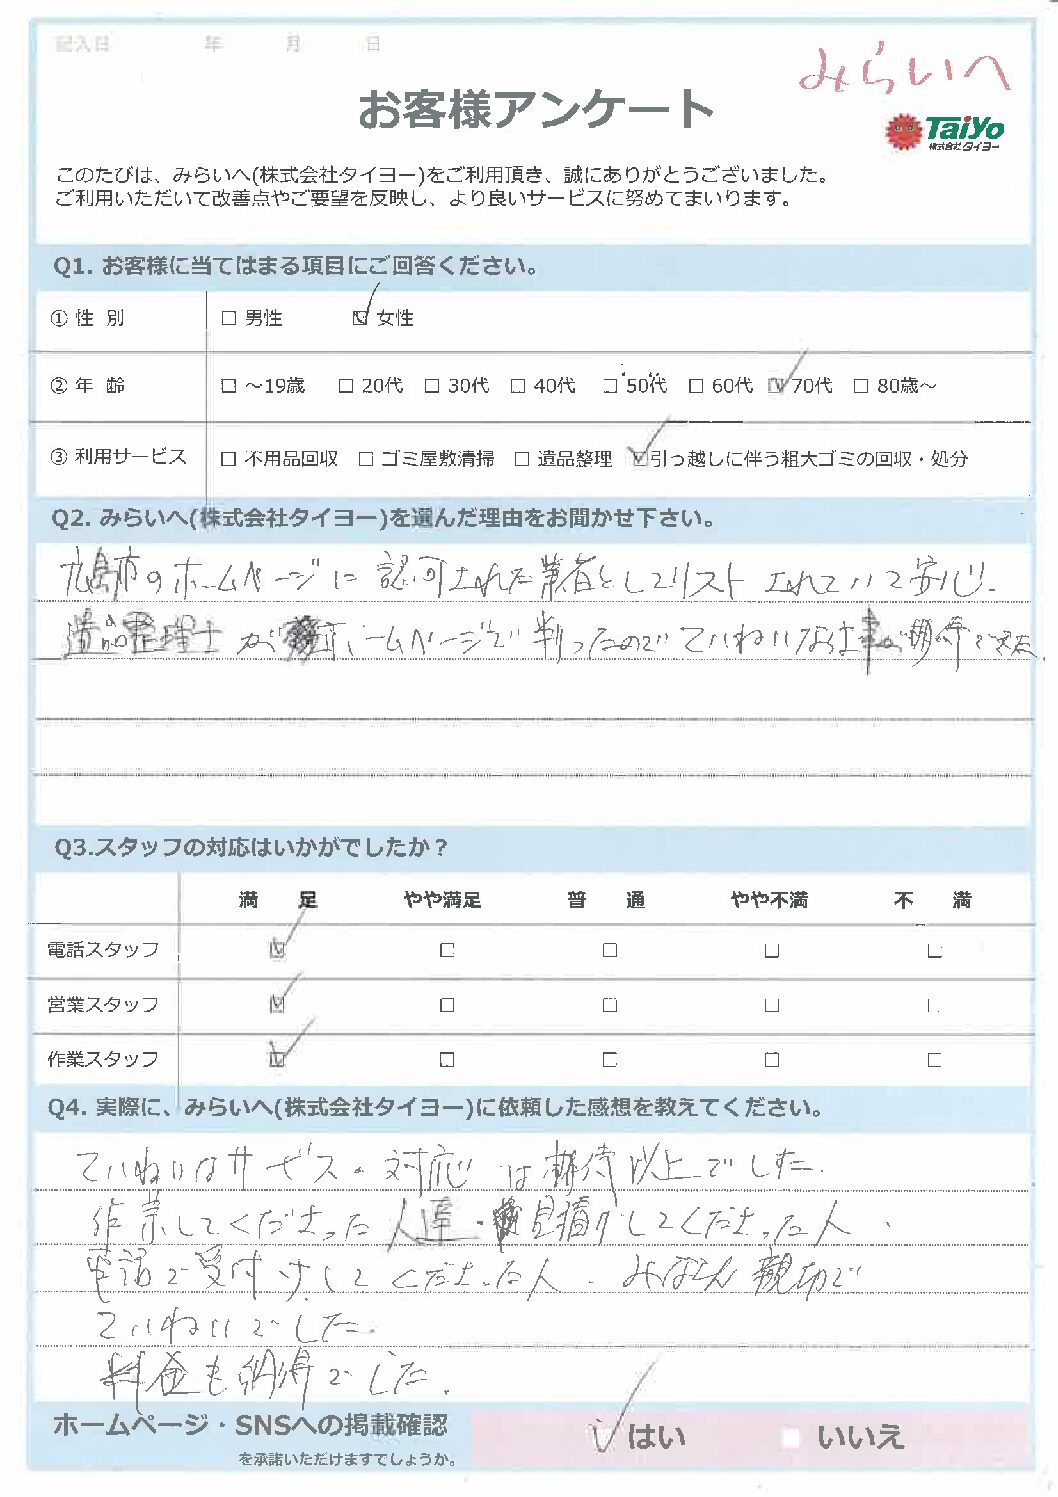 記入日 年 月 日
みらいへ
お客様アンケート
Taiyo
株式会社タイヨー
このたびは、みらいへ(株式会社タイヨー)をご利用頂き、誠にありがとうございました。
ご利用いただいて改善点やご要望を反映し、より良いサービスに努めてまいります。
Q1. お客様に当てはまる項目にご回答ください。
① 性 別 □ 男性 ☑ 女性
② 年 齢 □ ～19歳 □ 20代 □ 30代 □ 40代 □ 50代 □ 60代 ☑ 70代 □ 80歳～
③ 利用サービス □ 不用品回収 □ ゴミ屋敷清掃 □ 遺品整理 ☑ 引っ越しに伴う粗大ゴミの回収・処分
Q2. みらいへ(株式会社タイヨー)を選んだ理由をお聞かせ下さい。
島市のホームページに認可された業者としてリストされていて安心.
遺品整理士がホームページで判ったのでていねいなお仕事が期待できた.
Q3.スタッフの対応はいかがでしたか？
満 足 やや満足 普 通 やや不満 不 満
電話スタッフ ☑ □ □ □ □
営業スタッフ ☑ □ □ □ □
作業スタッフ ☑ □ □ □ □
Q4. 実際に、みらいへ(株式会社タイヨー)に依頼した感想を教えてください。
ていねいなサービス・対応は期待以上でした.
作業してくださった人達・見積りしてくださった人、
電話で受付けしてくださった人、みなさん親切で
ていねいでした.
料金も納得でした.
ホームページ・SNSへの掲載確認
を承諾いただけますでしょうか。
☑ はい □ いいえ